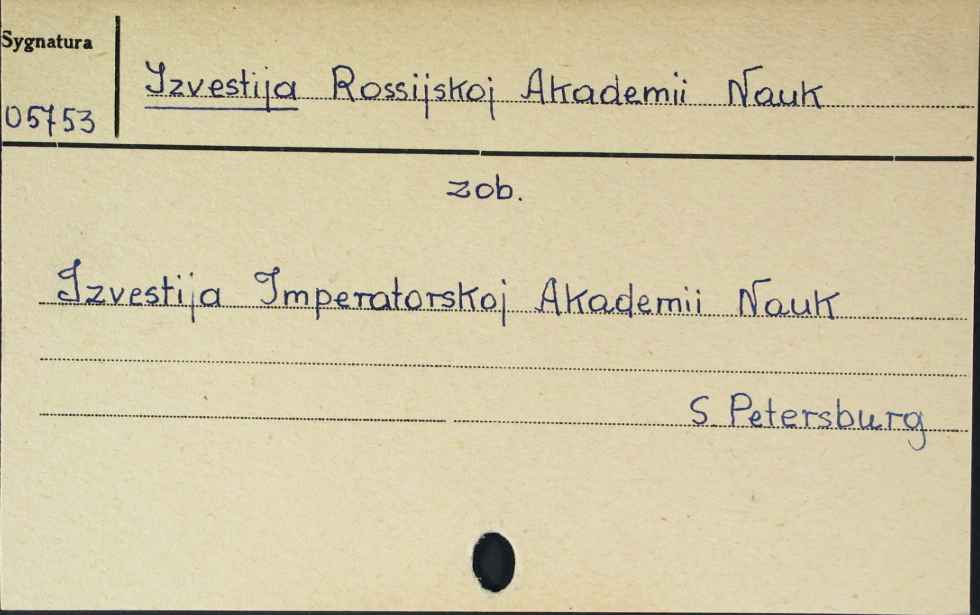 Sygnatura
Izvestija Rossijskoj Akademii Nauk
05753
zob.
Izvestija Imperatorskoj Akademii Nauk
S. Petersburg